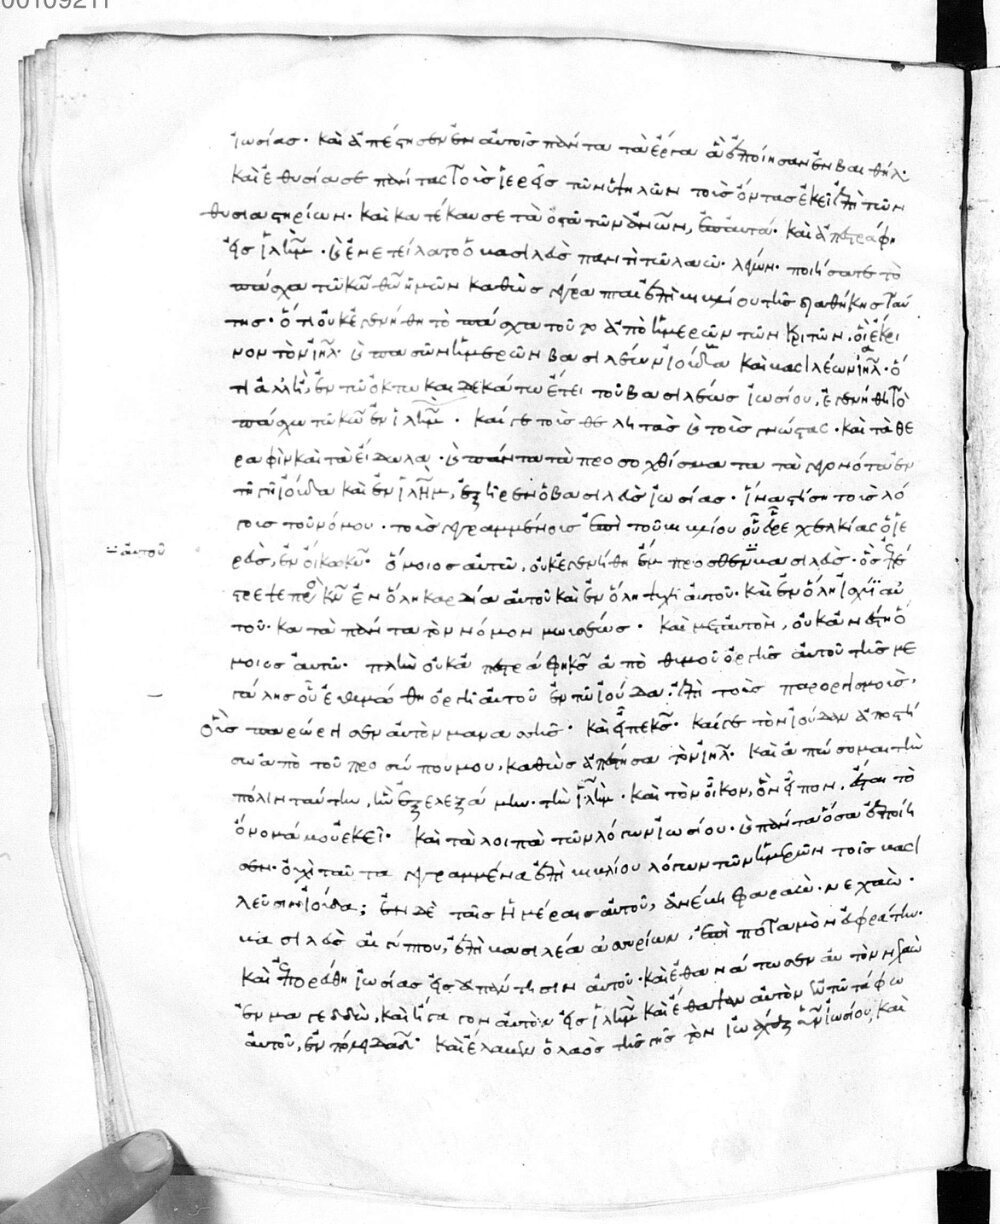 00109211
ἰωσίας · καὶ ἀπέστησεν ἐν αὐτοῖς πάντα τὰ ἔργα ἃ ἐποίησαν ἐν βαιθήλ ·
καὶ ἐθυσίασε πάντας τοὺς ἱερεῖς τῶν ὑψηλῶν τοὺς ὄντας ἐκεῖ ἐπὶ τῶν
θυσιαστηρίων · καὶ κατέκαυσε τὰ ὀστᾶ τῶν ἀνων, ἐπ' αὐτά · καὶ ἀπεστράφη
εἰς ἱλημ · καὶ ἐνετείλατο ὁ βασιλεὺς παντὶ τῷ λαῷ · λέγων · ποιήσατε τὸ
πάσχα τῷ κω θω ἡμῶν καθὼς γέγραπται ἐπὶ βιβλίου τῆς διαθήκης ταύ
της · ὅτι οὐκ ἐγενήθη τὸ πάσχα τοῦτο ἀπὸ ἡμερῶν τῶν κριτῶν, οἳ ἔκρι
νον τὸν ιηλ · καὶ πασῶν ἡμερῶν βασιλέων ἰούδα καὶ βασιλέων ιηλ · ὅ
τι ἀλλ' ἢ, ἐν τῷ ὀκτωκαιδεκάτῳ ἔτει τοῦ βασιλέως ἰωσίου, ἐγενήθη τὸ
πάσχα τῷ κω ἐν ἱλημ · καί γε τοὺς θελητὰς καὶ τοὺς γνώστας · καὶ τὰ θε
ραφὶν καὶ τὰ εἴδωλα · καὶ πάντα τὰ προσοχθίσματα τὰ γεγονότα ἐν
τῇ γῇ ἰούδα καὶ ἐν ἱλημ, ἐξῆρεν ὁ βασιλεὺς ἰωσίας · ἵνα στήσῃ τοὺς λό
γους τοῦ νόμου · τοὺς γεγραμμένους ἐπὶ τοῦ βιβλίου οὗ εὗρε χελκίας ὁ ἱε
αὐτοῦ
ρεὺς, ἐν οἴκῳ κυ · ὅμοιος αὐτῷ, οὐκ ἐγενήθη ἔμπροσθεν βασιλεὺς · ὃς ἐπέ
στρεψε πρὸς κν ἐν ὅλῃ καρδίᾳ αὐτοῦ καὶ ἐν ὅλῃ ψυχῇ αὐτοῦ · καὶ ἐν ὅλῃ ἰσχύϊ αὐ
τοῦ · κατὰ πάντα τὸν νόμον μωυσέως · καὶ μετ' αὐτὸν, οὐκ ἀνέστη ὅ
μοιος αὐτῷ · πλὴν οὐκ ἀπεστράφη κς ἀπὸ θυμοῦ ὀργῆς αὐτοῦ τῆς με
γάλης οὗ ἐθυμώθη ὀργὴ αὐτοῦ ἐν τῷ ἰούδα · ἐπὶ τοὺς παροργισμοὺς,
οἷς παρώργισεν αὐτὸν μανασσῆς · καὶ εἶπε κς · καί γε τὸν ἰούδαν ἀποστή
σω ἀπὸ τοῦ προσώπου μου, καθὼς ἀπέστησα τὸν ιηλ · καὶ ἀπώσομαι τὴν
πόλιν ταύτην, ἣν ἐξελεξάμην · τὴν ιλημ · καὶ τὸν οἶκον, ὃν εἶπον, ἔσται τὸ
ὄνομά μου ἐκεῖ · καὶ τὰ λοιπὰ τῶν λόγων ἰωσίου · καὶ πάντα ὅσα ἐποίη
σεν · οὐχὶ ταῦτα γεγραμμένα ἐπὶ βιβλίου λόγων τῶν ἡμερῶν τοῖς βασι
λεῦσιν ἰούδα ; ἐν δὲ ταῖς ἡμέραις αὐτοῦ, ἀνέβη φαραὼ · νεχαὼ ·
βασιλεὺς αἰγύπτου, ἐπὶ βασιλέα ἀσσυρίων, ἐπὶ ποταμὸν εὐφράτην ·
καὶ ἐπορεύθη ἰωσίας εἰς ἀπάντησιν αὐτοῦ · καὶ ἐθανάτωσεν αὐτὸν νεχαὼ
ἐν μαγεδδὼ, καὶ ἤγαγον αὐτὸν εἰς ἱλημ καὶ ἔθαψαν αὐτὸν ἐν τῷ τάφῳ
αὐτοῦ, ἐν πόλει δαδ · καὶ ἔλαβεν ὁ λαὸς τῆς γῆς τὸν ἰωάχαζ υἱὸν ἰωσίου, καὶ